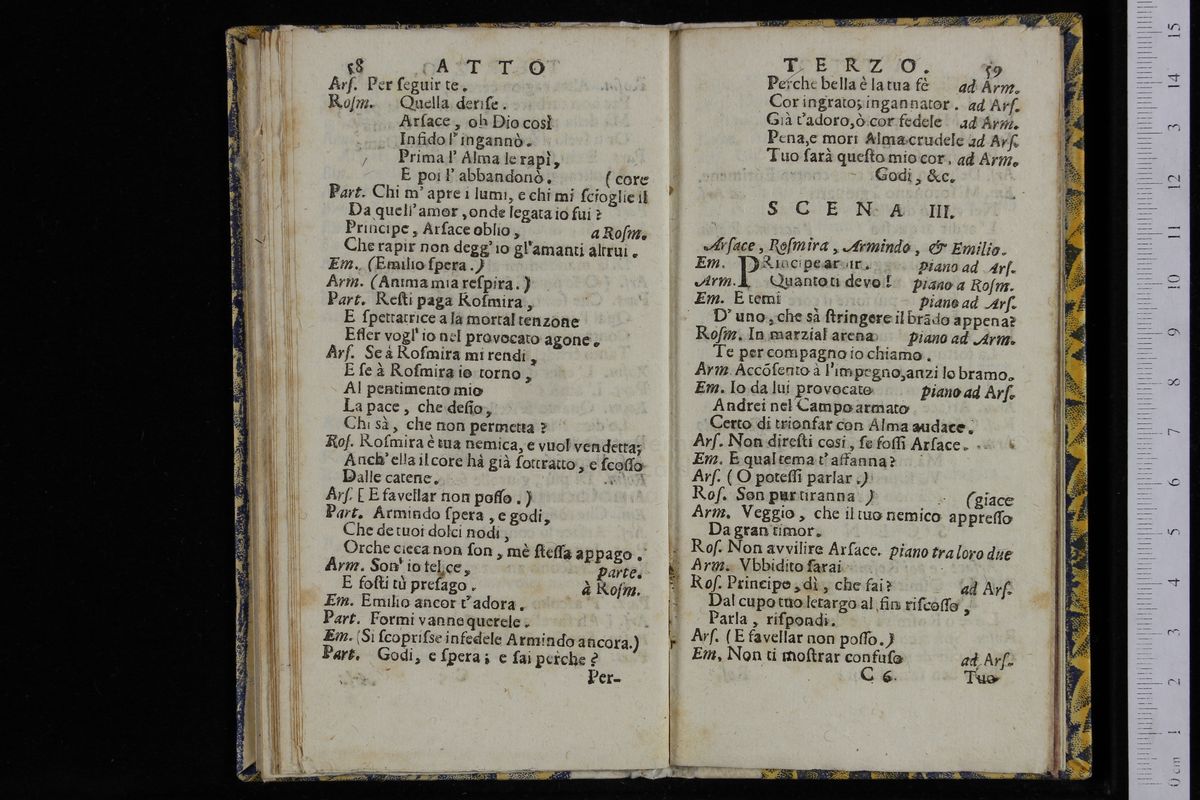 58 ATTO
Arſ. Per ſeguir te.
Roſm. Quella deriſe.
Arſace, oh Dio così
Infido l'ingannò.
Prima l'Alma le rapì,
E poi l'abbandonò. (core
Part. Chi m'apre i lumi, e chi mi ſcioglie il
Da quell'amor, onde legata io fui?
Principe, Arſace oblio, a Roſm.
Che rapir non degg'io gl'amanti altrui.
Em. (Emilio ſpera.)
Arm. (Anima mia reſpira.)
Part. Reſti paga Roſmira,
E ſpettatrice a la mortal tenzone
Eſſer vogl'io nel provocato agone.
Arſ. Se à Roſmira mi rendi,
E ſe à Roſmira io torno,
Al pentimento mio
La pace, che deſio,
Chi sà, che non permetta?
Roſ. Roſmira è tua nemica, e vuol vendetta;
Anch'ella il core hà già ſottratto, e ſcoſſo
Dalle catene.
Arſ. [E favellar non poſſo.)
Part. Armindo ſpera, e godi,
Che de tuoi dolci nodi,
Orche cieca non ſon, mè ſteſſa appago.
Arm. Son' io felice, parte.
E foſti tù preſago. à Roſm.
Em. Emilio ancor t'adora.
Part. Formi vanne querele.
Em. (Si ſcopriſse infedele Armindo ancora.)
Part. Godi, e ſpera; e ſai perche?
Per-
TERZO. 59
Perche bella è la tua fè ad Arm.
Cor ingrato; ingannator. ad Arſ.
Già t'adoro, ò cor fedele ad Arm.
Pena, e mori Alma crudele ad Arſ.
Tuo ſarà queſto mio cor, ad Arm.
Godi, &c.
SCENA III.
Arſace, Roſmira, Armindo, & Emilio.
Em. PRincipe ardir. piano ad Arſ.
Arm. Quanto ti devo! piano a Roſm.
Em. E temi piano ad Arſ.
D'uno, che sà ſtringere il brãdo appena?
Roſm. In marzial arena piano ad Arm.
Te per compagno io chiamo.
Arm. Accõſento à l'impegno, anzi lo bramo.
Em. Io da lui provocato piano ad Arſ.
Andrei nel Campo armato
Certo di trionfar con Alma audace.
Arſ. Non direſti così, ſe foſſi Arſace.
Em. E qual tema t'affanna?
Arſ. (O poteſſi parlar.)
Roſ. Son pur tiranna ) (giace
Arm. Veggio, che il tuo nemico appreſſo
Da gran timor.
Roſ. Non avvilire Arſace. piano tra loro due
Arm. Vbbidito ſarai
Roſ. Principe, dì, che fai? ad Arſ.
Dal cupo tuo letargo al fin riſcoſſo,
Parla, riſpondi.
Arſ. (E favellar non poſſo.)
Em. Non ti moſtrar confuſo ad Arſ.
C 6. Tuo
0 cm 1 2 3 4 5 6 7 8 9 10 11 12 13 14 15